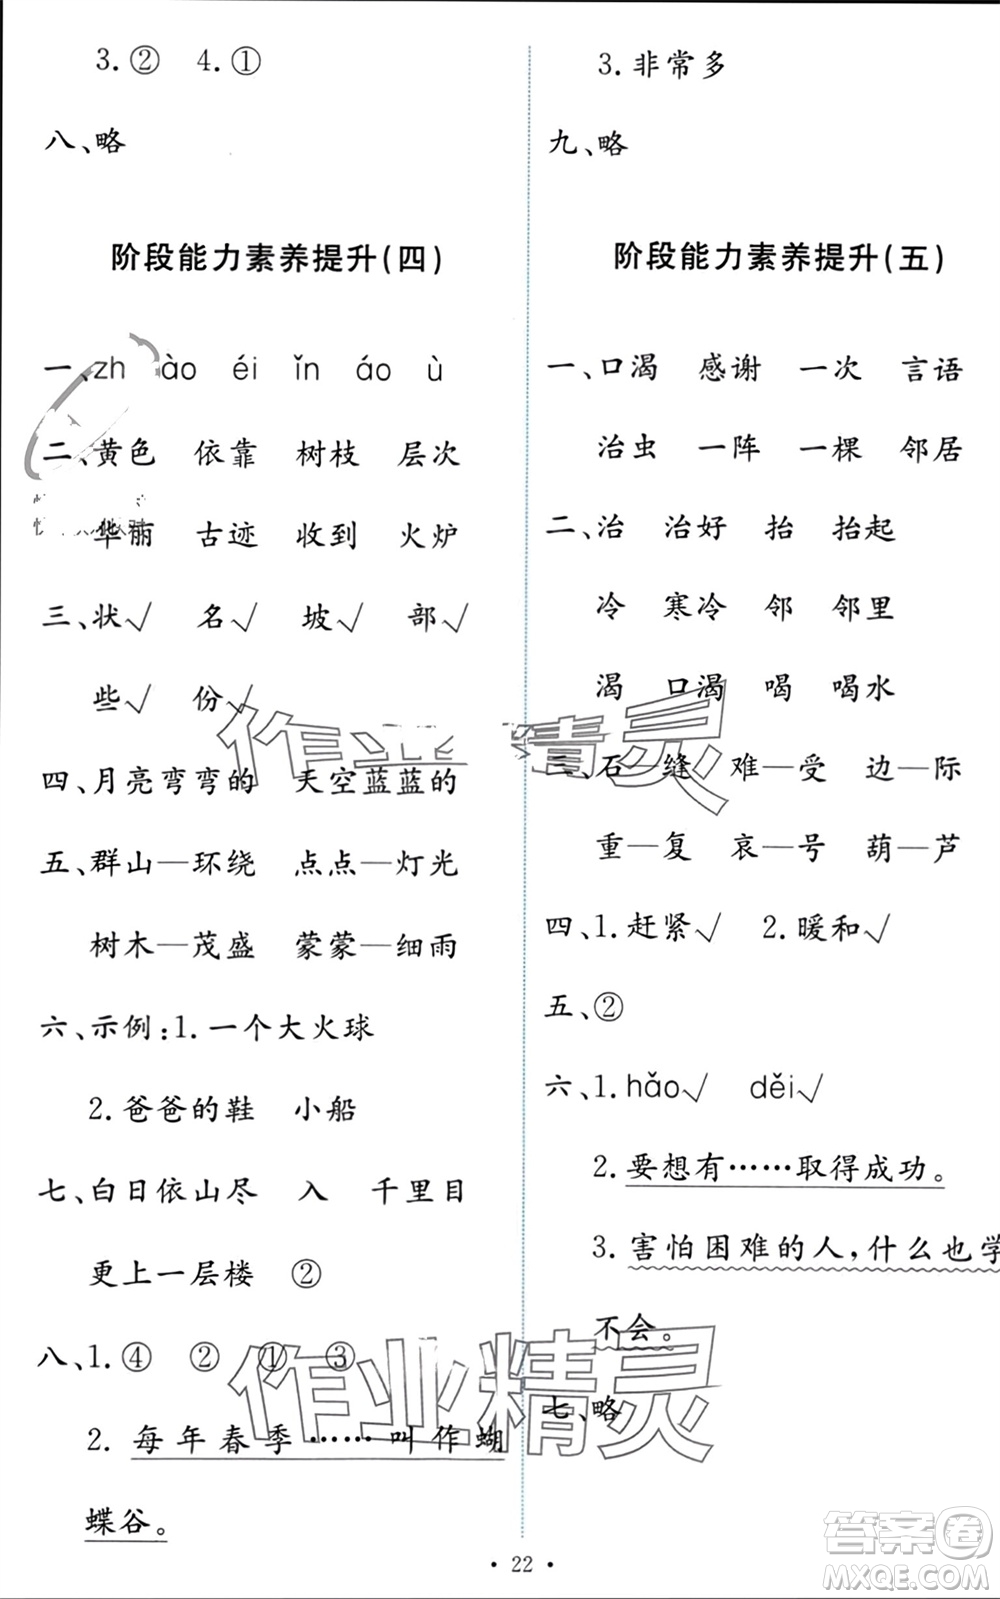 3.② 4.①
八、略
阶段能力素养提升(四)
一、zh ào éi ǐn áo ù
二、黄色 依靠 树枝 层次
华丽 古迹 收到 火炉
三、状√ 名√ 坡√ 部√
些√ 份√
四、月亮弯弯的 天空蓝蓝的
五、群山—环绕 点点—灯光
树木—茂盛 蒙蒙—细雨
六、示例:1.一个大火球
2.爸爸的鞋 小船
七、白日依山尽 入 千里目
更上一层楼 ②
八、1.④ ② ① ③
2.每年春季……叫作蝴
蝶谷。
3.非常多
九、略
阶段能力素养提升(五)
一、口渴 感谢 一次 言语
治虫 一阵 一棵 邻居
二、治 治好 抬 抬起
冷 寒冷 邻 邻里
渴 口渴 喝 喝水
三、石—缝 难—受 边—际
重—复 哀—号 葫—芦
四、1.赶紧√ 2.暖和√
五、②
六、1.hǎo√ děi√
2.要想有……取得成功。
3.害怕困难的人,什么也学
不会。
七、略
• 22 •
作业精灵
作业精灵
答案卷